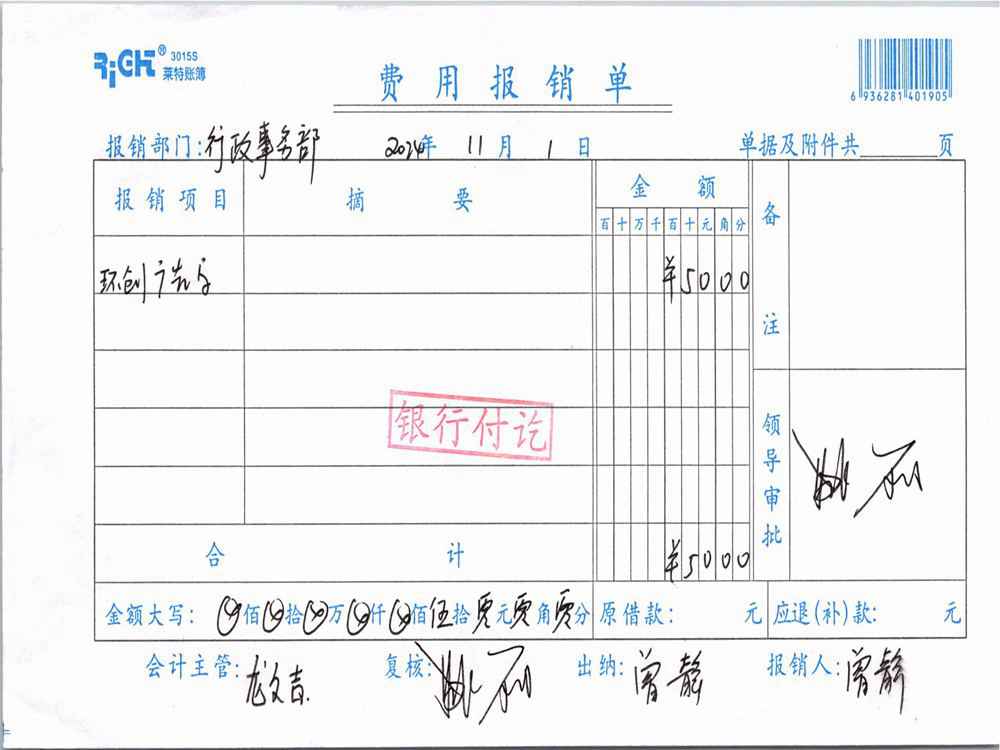 RiCH® 3015S
莱特账簿
费用报销单
6 936281 401905
报销部门:行政事务部 2024年 11月 1日 单据及附件共 页
报销项目 摘要 金额 备注
百十万千百十元角分
环创广告字 ¥5000
银行付讫
领导审批
合计 ¥5000
金额大写: 佰 拾 万 仟 佰伍拾零元零角零分 原借款: 元 应退(补)款: 元
会计主管:龙文吉 复核: 出纳:曾静 报销人:曾静